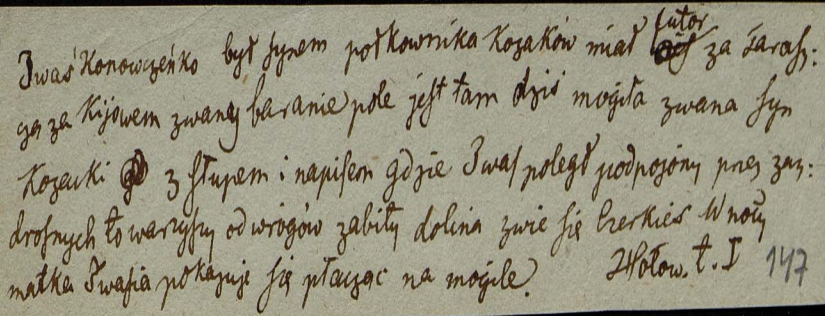 Iwaś Konowczeńko był synem połkownika Kozaków miał futor za Tarasz:
czą za Kijowem zwanej baranie pole jest tam dziś mogiła zwana syn
Kozacki z słupem i napisem gdzie Iwaś poległ podpojony przez zaz:
drosnych towarzyszy od wrogów zabity dolina zwie się Czerkies W nocy
matka Iwasia pokazuje się płacząc na mogile. Hołow. t. I 147